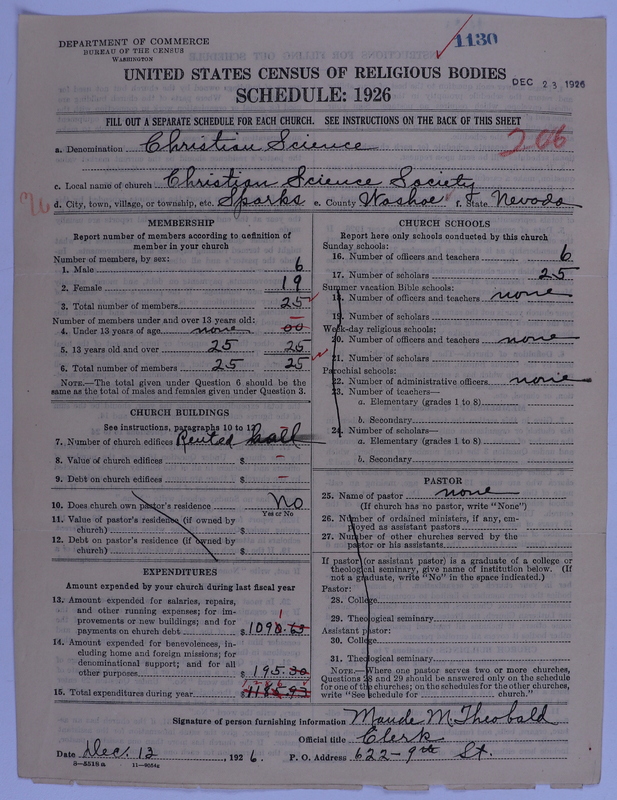 1130
DEPARTMENT OF COMMERCE
BUREAU OF THE CENSUS
WASHINGTON
UNITED STATES CENSUS OF RELIGIOUS BODIES
DEC 23 1926
SCHEDULE: 1926
FILL OUT A SEPARATE SCHEDULE FOR EACH CHURCH. SEE INSTRUCTIONS ON THE BACK OF THIS SHEET
a. Denomination Christian Science
206
c. Local name of church Christian Science Society
d. City, town, village, or township, etc. Sparks e. County Washoe f. State Nevada
MEMBERSHIP
Report number of members according to definition of
member in your church
Number of members, by sex:
1. Male 6
2. Female 19
3. Total number of members 25
Number of members under and over 13 years old:
4. Under 13 years of age none 00
5. 13 years old and over 25 25
6. Total number of members 25 25
NOTE.—The total given under Question 6 should be the
same as the total of males and females given under Question 3.
CHURCH BUILDINGS
See instructions, paragraphs 10 to 12
7. Number of church edifices Rented hall
8. Value of church edifices $ -
9. Debt on church edifices $ -
10. Does church own pastor's residence No
Yes or No
11. Value of pastor's residence (if owned by
church) $
12. Debt on pastor's residence (if owned by
church) $
EXPENDITURES
Amount expended by your church during last fiscal year
13. Amount expended for salaries, repairs,
and other running expenses; for im-
provements or new buildings; and for
payments on church debt $
14. Amount expended for benevolences, in-
cluding home and foreign missions; for
denominational support; and for all
other purposes $ 195.30
15. Total expenditures during year $
CHURCH SCHOOLS
Report here only schools conducted by this church
Sunday schools:
16. Number of officers and teachers 6
17. Number of scholars 25
Summer vacation Bible schools:
18. Number of officers and teachers none
19. Number of scholars
Week-day religious schools:
20. Number of officers and teachers none
21. Number of scholars
Parochial schools:
22. Number of administrative officers none
23. Number of teachers—
a. Elementary (grades 1 to 8)
b. Secondary
24. Number of scholars—
a. Elementary (grades 1 to 8)
b. Secondary
PASTOR
25. Name of pastor none
(If church has no pastor, write "None")
26. Number of ordained ministers, if any, em-
ployed as assistant pastors
27. Number of other churches served by the
pastor or his assistants
If pastor (or assistant pastor) is a graduate of a college or
theological seminary, give name of institution below. (If
not a graduate, write "No" in the space indicated.)
Pastor:
28. College
29. Theological seminary
Assistant pastor:
30. College
31. Theological seminary
NOTE.—Where one pastor serves two or more churches,
Questions 28 and 29 should be answered only on the schedule
for one of the churches; on the schedules for the other churches,
write "See schedule for church."
Signature of person furnishing information Maude M. Theobald
Official title Clerk
Date Dec. 13, 1926. P. O. Address 622-9th St.
8-5518a 11-9052